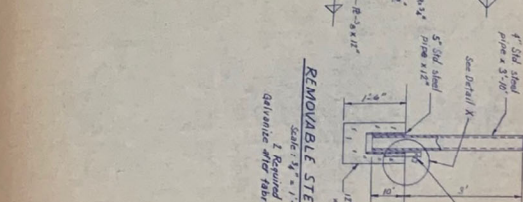 4" Std. steel
pipe x 3'-10"
See Detail X
5" Std. steel
pipe x 12"
1'-6"
10"
3'
REMOVABLE STE
Scale: 3/4" = 1'
2 Required
Galvanize after fabr